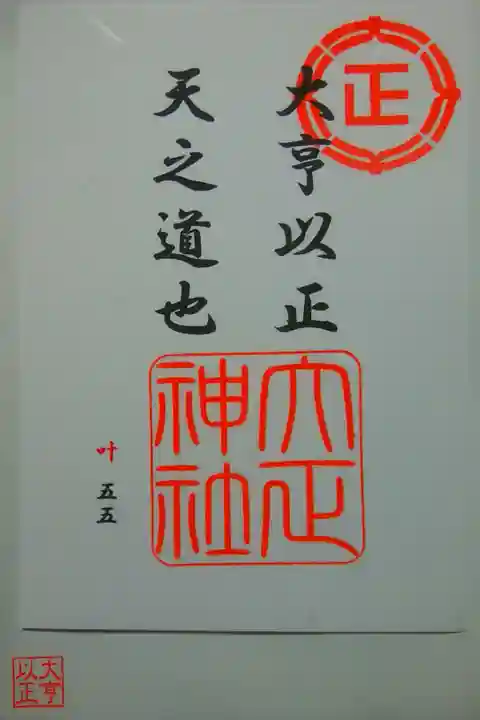 正
大亨以正
天之道也
大正
神社
叶 五五
大亨
以正